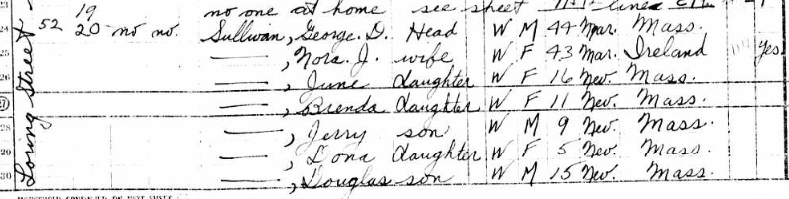 23 no one at home see sheet 71 lines
19
24 52 20 no no. Sullivan, George. D. Head W M 44 Mar. Mass.
25 ——, Nora. J. wife W F 43 Mar. Ireland Yes
26 ——, June daughter W F 16 Nev. Mass.
27 ——, Brenda daughter W F 11 Nev. Mass.
28 ——, Jerry son W M 9 Nev. Mass.
29 ——, Lona daughter W F 5 Nev. Mass.
30 ——, Douglas son W M 15 Nev. Mass.
Street